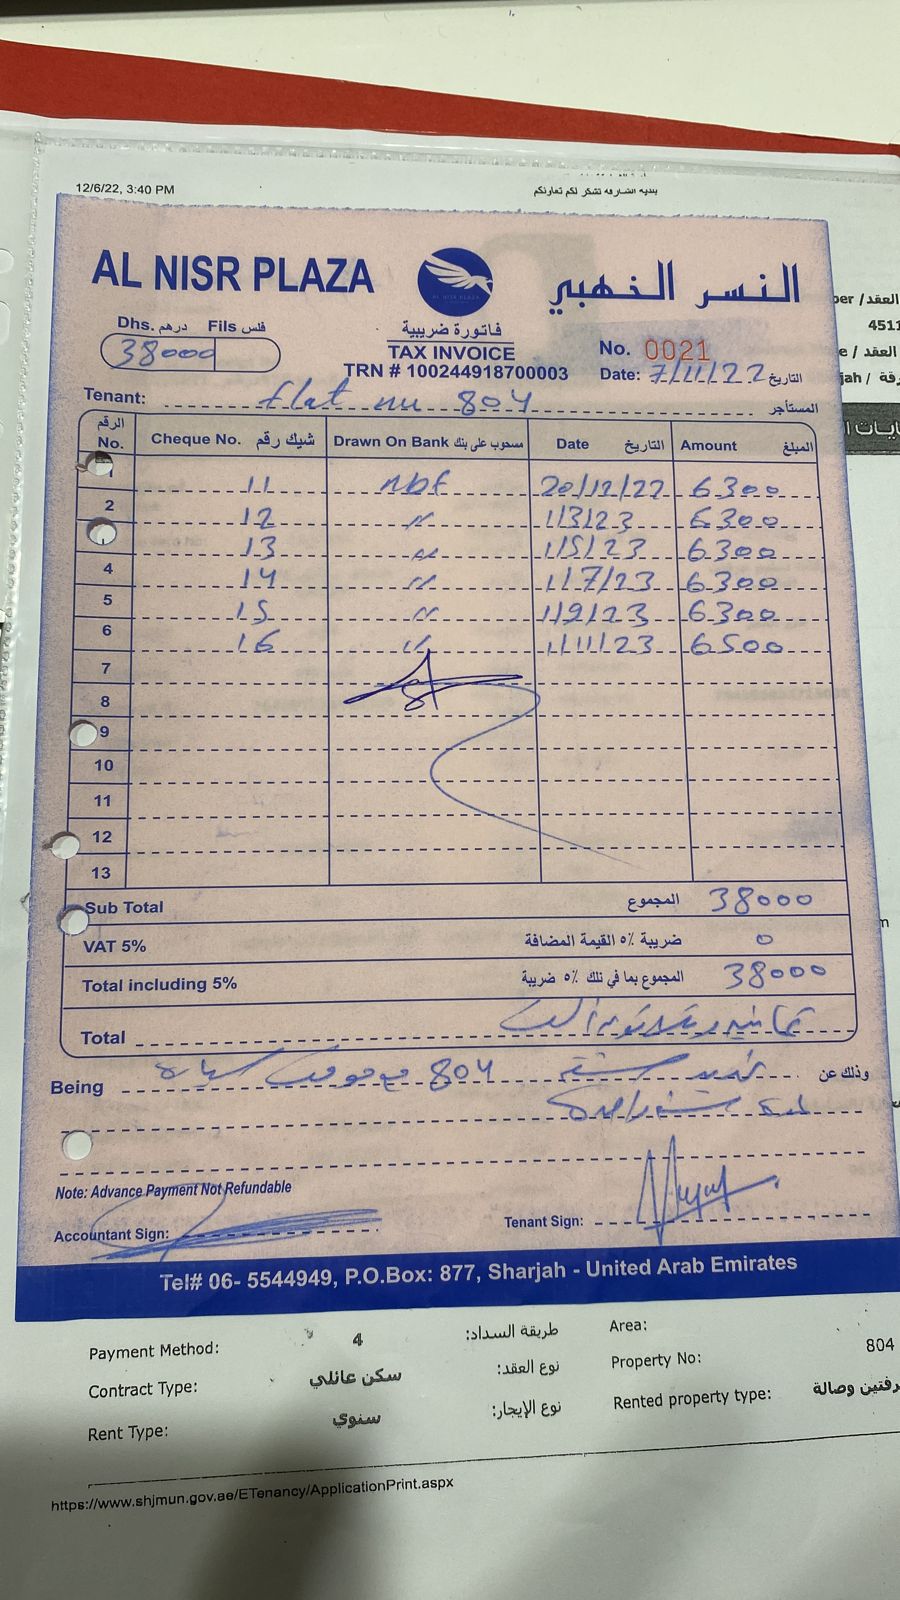 12/6/22, 3:40 PM
بلدية الشارقة تشكر لكم تعاونكم
AL NISR PLAZA
النسر الذهبي
AL NISR PLAZA
Dhs. درهم Fils فلس
38000
فاتورة ضريبية
TAX INVOICE
TRN # 100244918700003
No. 0021
Date: 7/11/22 التاريخ
Tenant: flat nu 804 المستأجر
الرقم No. Cheque No. شيك رقم Drawn On Bank مسحوب على بنك Date التاريخ Amount المبلغ
1 11 nbf 20/12/22 6300
2 12 〃 1/3/23 6300
13 〃 1/5/23 6300
4 14 〃 1/7/23 6300
5 15 〃 1/9/23 6300
6 16 〃 1/11/23 6500
7
8
9
10
11
12
13
Sub Total المجموع 38000
VAT 5% ضريبة ٥٪ القيمة المضافة 0
Total including 5% المجموع بما في ذلك ٥٪ ضريبة 38000
Total ثمانية وثلاثون ألف
Being وذلك عن تجديد شقة 804 مع موقف سيارة
لمدة سنة واحدة
Note: Advance Payment Not Refundable
Accountant Sign:
Tenant Sign:
Tel# 06- 5544949, P.O.Box: 877, Sharjah - United Arab Emirates
Payment Method: 4 طريقة السداد: Area:
Contract Type: سكن عائلي نوع العقد: Property No: 804
Rent Type: سنوي نوع الإيجار: Rented property type: رفتين وصالة
https://www.shjmun.gov.ae/ETenancy/ApplicationPrint.aspx
العقد/ ber
4511
العقد / e
رقة / jah